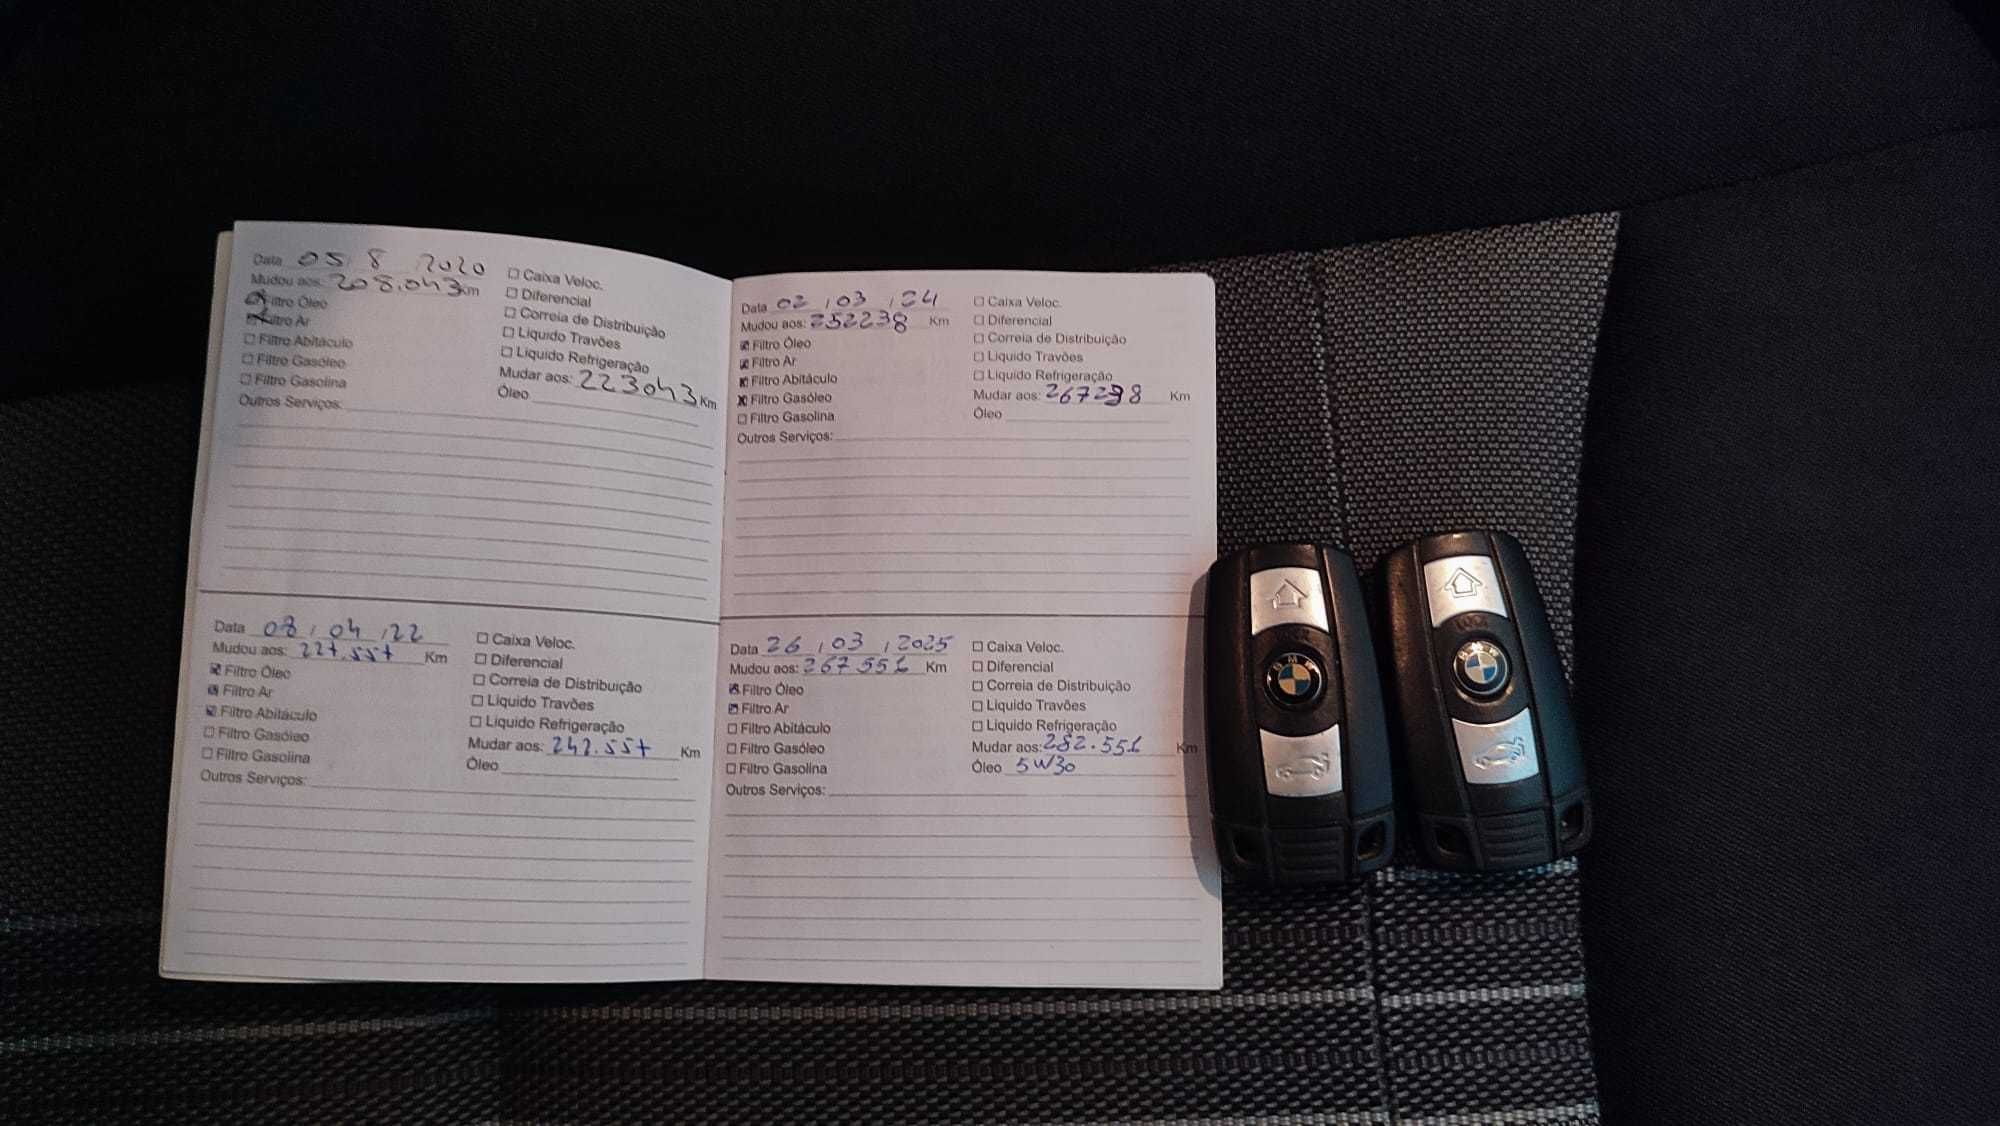 Data 05 8 2020
Mudou aos: 208.043 Km
Filtro Óleo
Filtro Ar
Filtro Abitáculo
Filtro Gasóleo
Filtro Gasolina
Outros Serviços:
Caixa Veloc.
Diferencial
Correia de Distribuição
Liquido Travões
Liquido Refrigeração
Mudar aos: 223043 Km
Óleo
Data 08 / 04 / 22
Mudou aos: 227.557 Km
Filtro Óleo
Filtro Ar
Filtro Abitáculo
Filtro Gasóleo
Filtro Gasolina
Outros Serviços:
Caixa Veloc.
Diferencial
Correia de Distribuição
Liquido Travões
Liquido Refrigeração
Mudar aos: 242.557 Km
Óleo
Data 02 / 03 / 24
Mudou aos: 252238 Km
Filtro Óleo
Filtro Ar
Filtro Abitáculo
Filtro Gasóleo
Filtro Gasolina
Outros Serviços:
Caixa Veloc.
Diferencial
Correia de Distribuição
Liquido Travões
Liquido Refrigeração
Mudar aos: 267238 Km
Óleo
Data 26 / 03 / 2025
Mudou aos: 267551 Km
Filtro Óleo
Filtro Ar
Filtro Abitáculo
Filtro Gasóleo
Filtro Gasolina
Outros Serviços:
Caixa Veloc.
Diferencial
Correia de Distribuição
Liquido Travões
Liquido Refrigeração
Mudar aos: 282.551 Km
Óleo 5W30
LOCK
BMW
LOCK
BMW